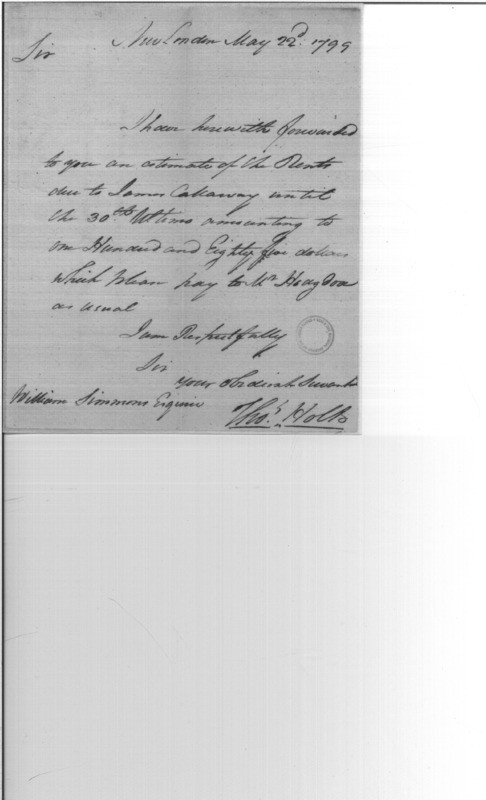 New London May 22d. 1799
Sir
I have herewith forwarded
to you an estimate of the Rents
due to James Callaway until
the 30th Ultimo amounting to
one Hundred and Eighty five dollars
which please pay to Mr Hodgdon
as usual
I am Respectfully
Sir
your Obedient Servant
William Simmons Esquire
Thos. Holt